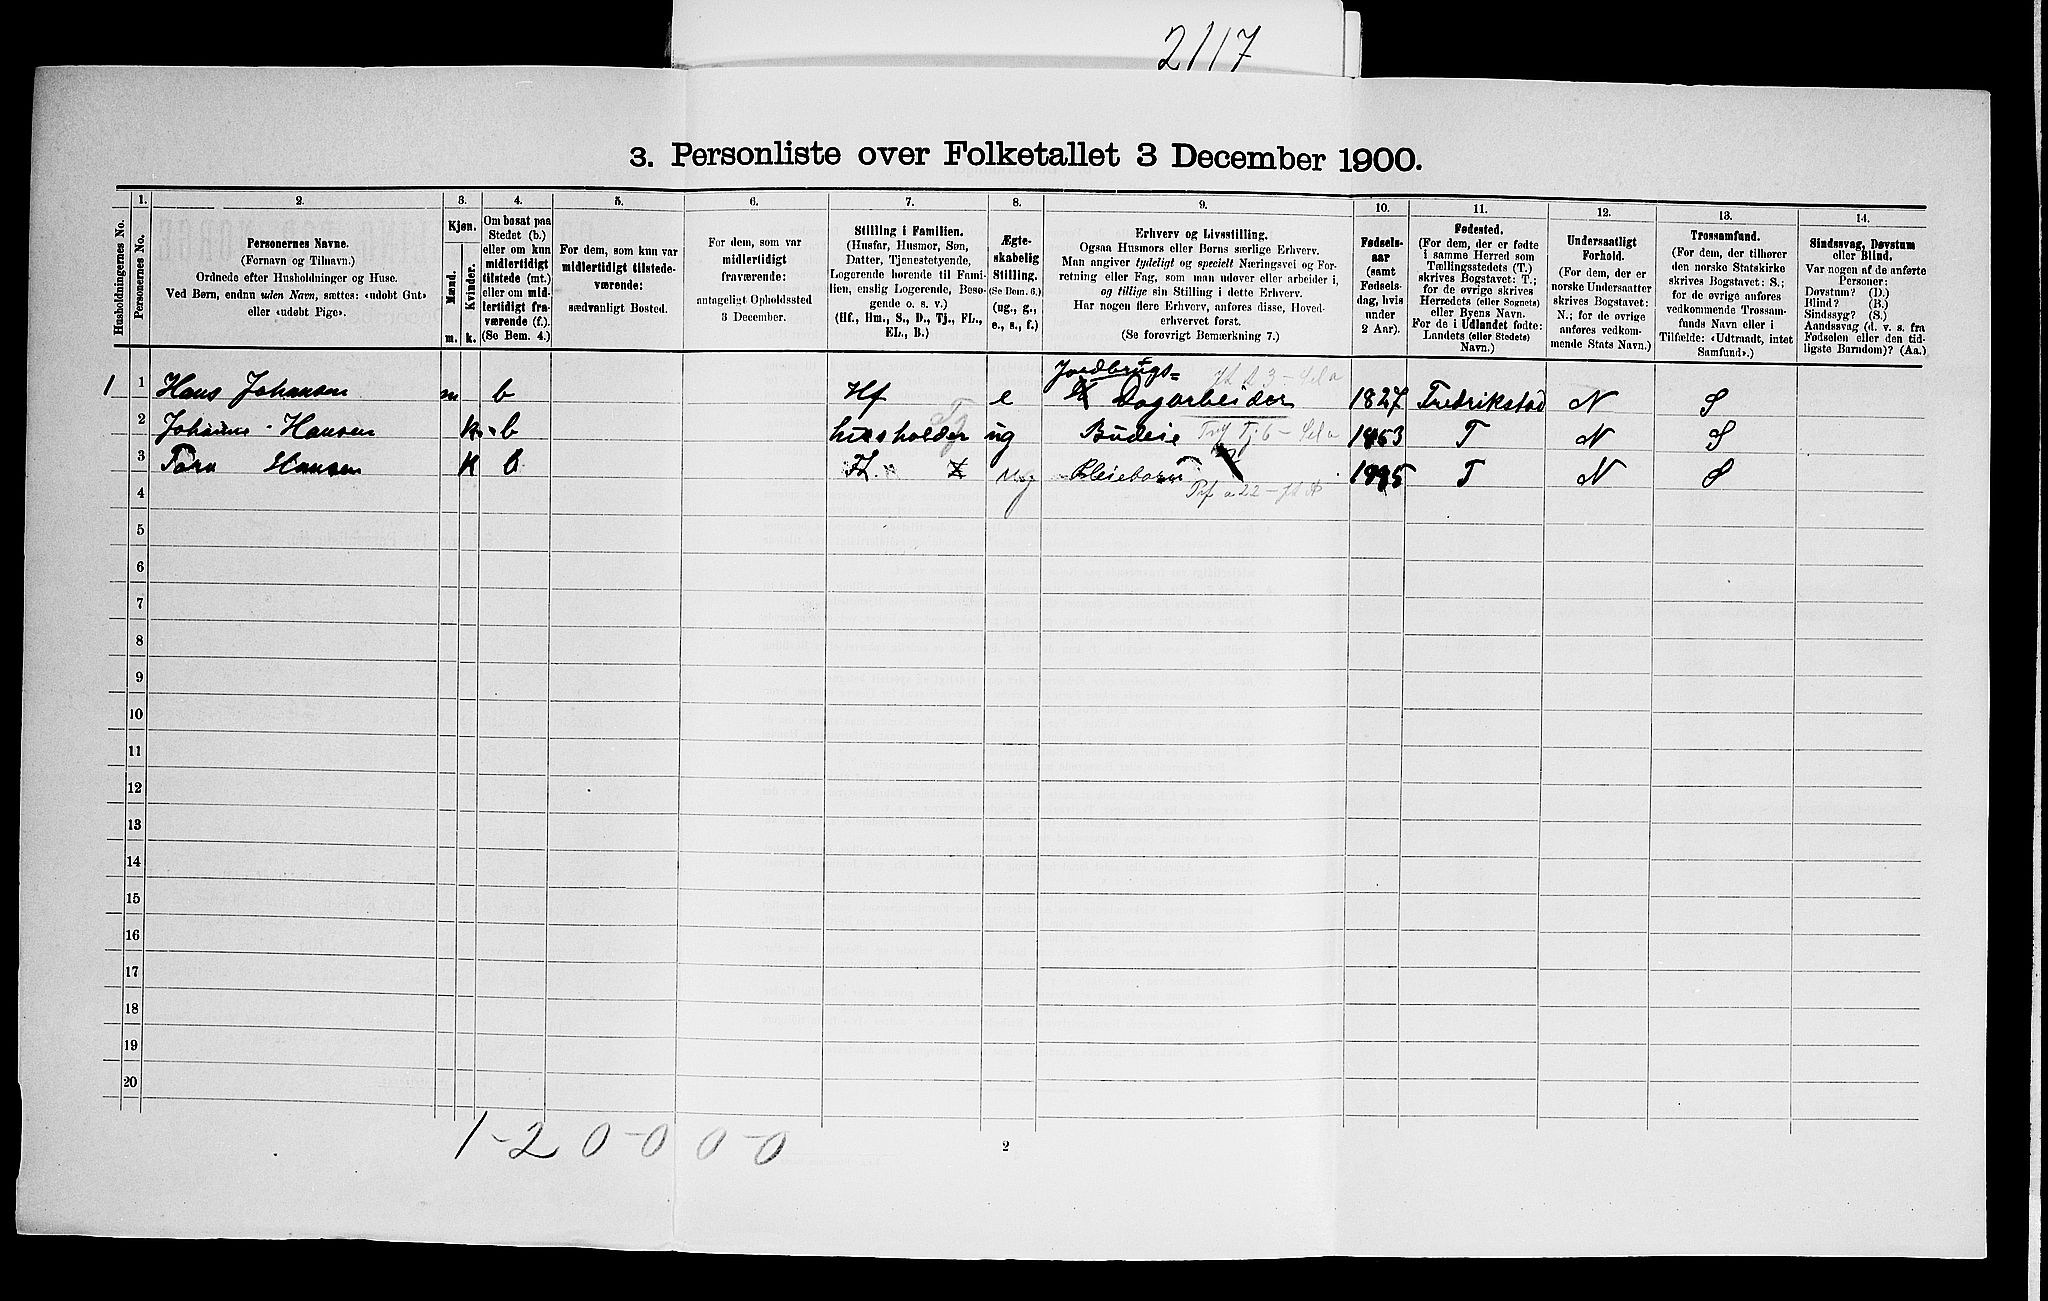 2117
3. Personliste over Folketallet 3 December 1900.
Husholdningernes No.
1.
Personernes No.
2.
Personernes Navne.
(Fornavn og Tilnavn.)
Ordnede efter Husholdninger og Huse.
Ved Børn, endnu uden Navn, sættes: «udøbt Gut»
eller «udøbt Pige».
3.
Kjøn.
Mænd.
Kvinder.
m. k.
4.
Om bosat paa
Stedet (b.)
eller om kun
midlertidigt
tilstede (mt.)
eller om mid-
lertidigt fra-
værende (f.).
(Se Bem. 4.)
5.
For dem, som kun var
midlertidigt tilstede-
værende:
sædvanligt Bosted.
6.
For dem, som var
midlertidigt
fraværende:
antageligt Opholdssted
3 December.
7.
Stilling i Familien.
(Husfar, Husmor, Søn,
Datter, Tjenestetyende,
Logerende hørende til Fami-
lien, enslig Logerende, Besø-
gende o. s. v.)
(Hf., Hm., S., D., Tj., FL.,
EL., B.)
8.
Ægte-
skabelig
Stilling.
(Se Bem. 6.)
(ug., g.,
e., s., f.)
9.
Erhverv og Livsstilling.
Ogsaa Husmors eller Børns særlige Erhverv.
Man angiver tydeligt og specielt Næringsvei og For-
retning eller Fag, som man udøver eller arbeider i,
og tillige sin Stilling i dette Erhverv.
Har nogen flere Erhverv, anføres disse, Hoved-
erhvervet først.
(Se forøvrigt Bemærkning 7.)
10.
Fødsels-
aar
(samt
Fødsels-
dag, hvis
under
2 Aar).
11.
Fødested.
(For dem, der er fødte
i samme Herred som
Tællingsstedets (T.)
skrives Bogstavet: T.;
for de øvrige skrives
Herredets (eller Sognets)
eller Byens Navn.
For de i Udlandet fødte:
Landets (eller Stedets)
Navn.)
12.
Undersaatligt
Forhold.
(For dem, der er
norske Undersaatter
skrives Bogstavet:
N.; for de øvrige
anføres vedkom-
mende Stats Navn.)
13.
Trossamfund.
(For dem, der tilhører
den norske Statskirke
skrives Bogstavet: S.;
for de øvrige anføres
vedkommende Trossam-
funds Navn eller i
Tilfælde: «Udtraadt, intet
Samfund».)
14.
Sindssvag, Døvstum
eller Blind.
Var nogen af de anførte
Personer:
Døvstum? (D.)
Blind? (B.)
Sindssyg? (S.)
Aandssvag (d. v. s. fra
Fødselen eller den tid-
ligste Barndom)? (Aa.)
1 1 Hans Johansen m b Hf e Jordbrugs=
Dagarbeider 1827 Fredrikstad N S
2 Johanne Hansen k b husholder ug Budeie 1863 T N S
3 Tora Hansen k b ug Pleiebarn T N S
4
5
6
7
8
9
10
11
12
13
14
15
16
17
18
19
20
1 - 2 0 - 0 0 - 0
2